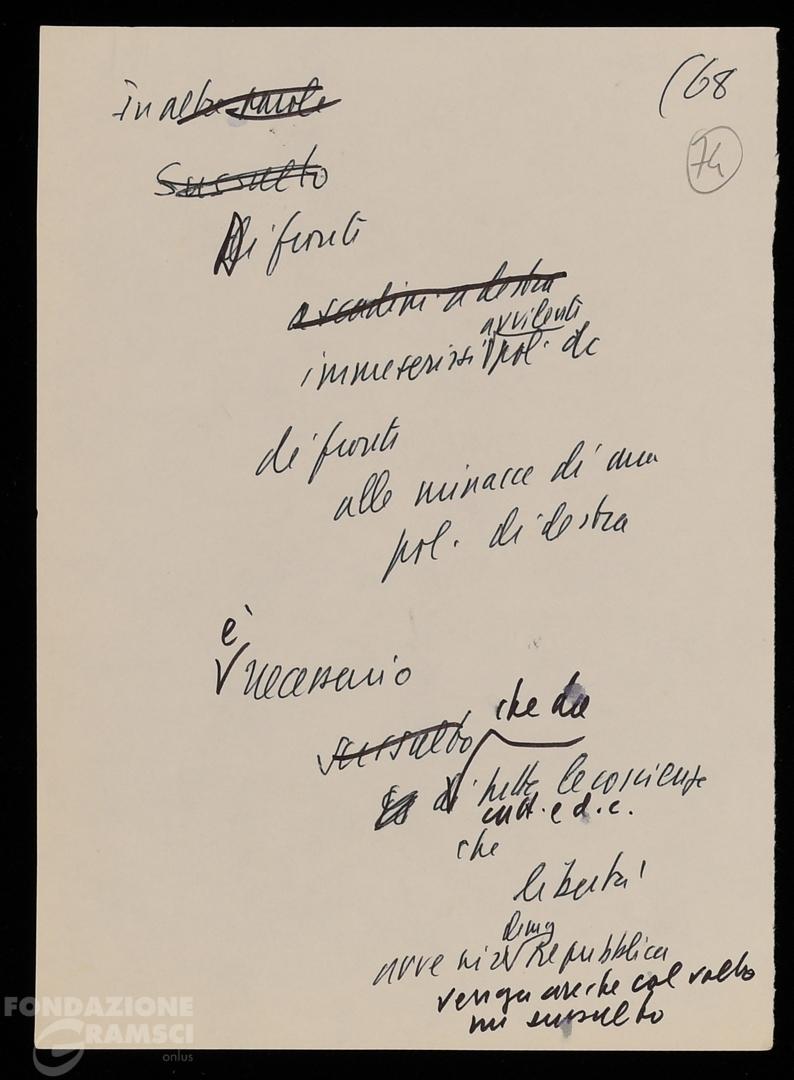 (68
74
in altre parole
Sussulto
Di fronte
a scadimi a destra
avvilenti
immiserisi pol. dc
di fronte
alle minacce di una
pol. di destra
è
necessario
che da
sussulto
di tutte le coscienze
catt. e d.c.
che
libertà
dem
avvenire Repubblica
venga anche col volto
un sussulto
FONDAZIONE
GRAMSCI
onlus